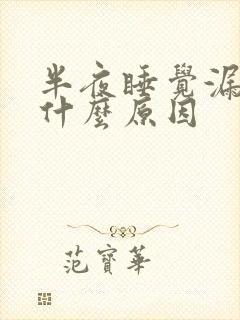 半夜睡覺漏
什麼原因
范寶華